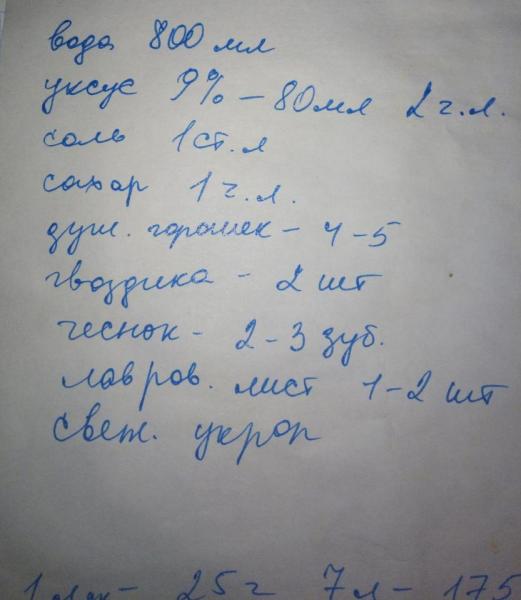 вода 800 мл
уксус 9% – 80мл 2 ч.л.
соль 1ст.л
сахар 1 ч.л.
душ. горошек – 4-5
гвоздика - 2 шт
чеснок - 2-3 зуб.
лавров. лист 1-2 шт
свеж. укроп
25 г 7л – 175